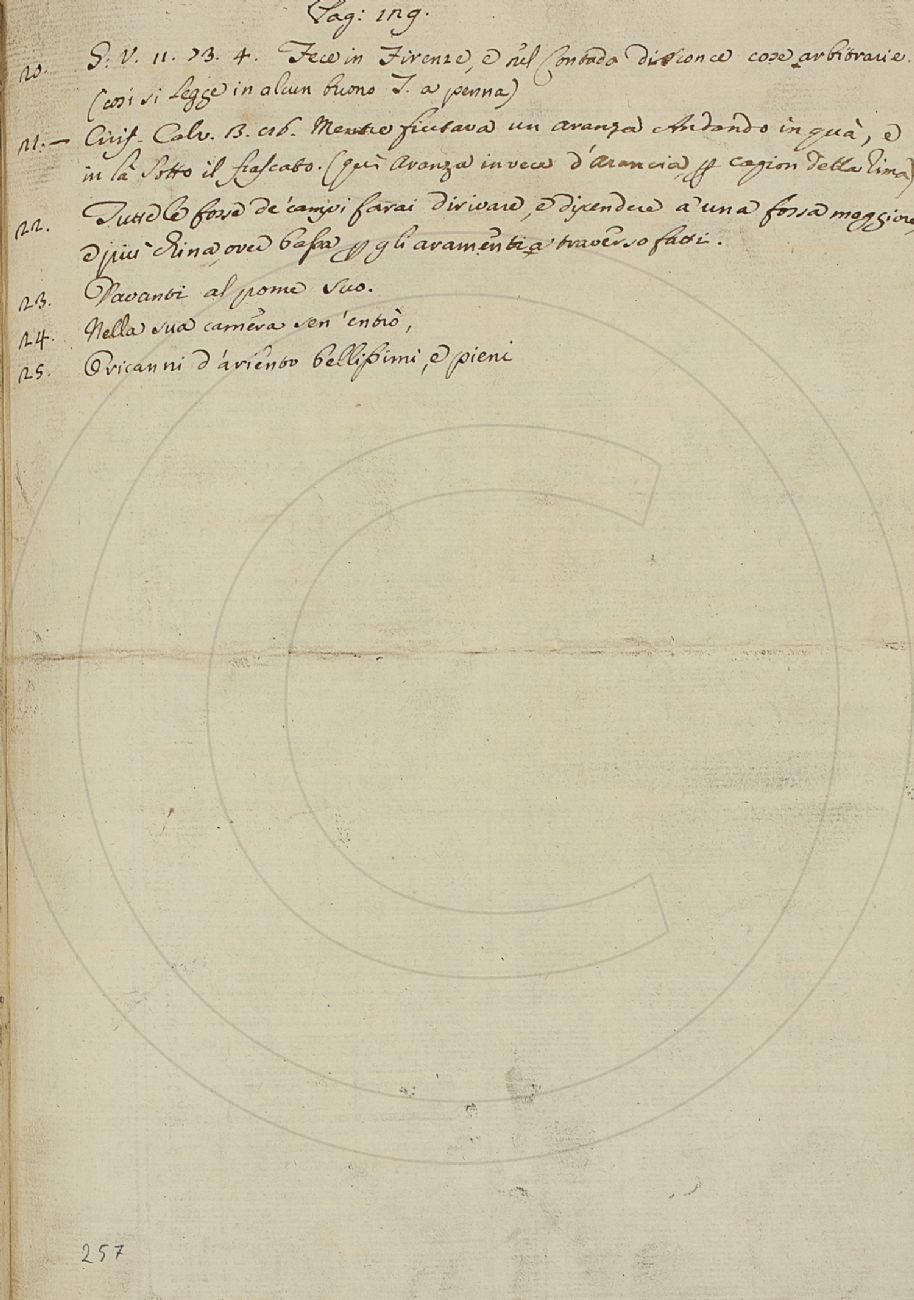 Pag: 129.
20. G. V. 11. 73. 4. Fece in Firenze, e nel Contado disconce cose arbitrarie.
(così si legge in alcun buono T. a penna)
21. — Ciriff. Calv. 13. Mentre fiutava un aranza Andando in quà, e
in là sotto il frascato. (quì Aranza invece d'Arancia, cagion della rima)
22. Tutte le fosse de' campi farai dirivare, e dipendere a una fossa maggiore,
e più china, over bassa gli aramenti a traverso fatti.
23. Davanti al pome suo.
24. Nella sua camera sen' entrò,
25. Oricanni d'ariento bellissimi, e pieni
257